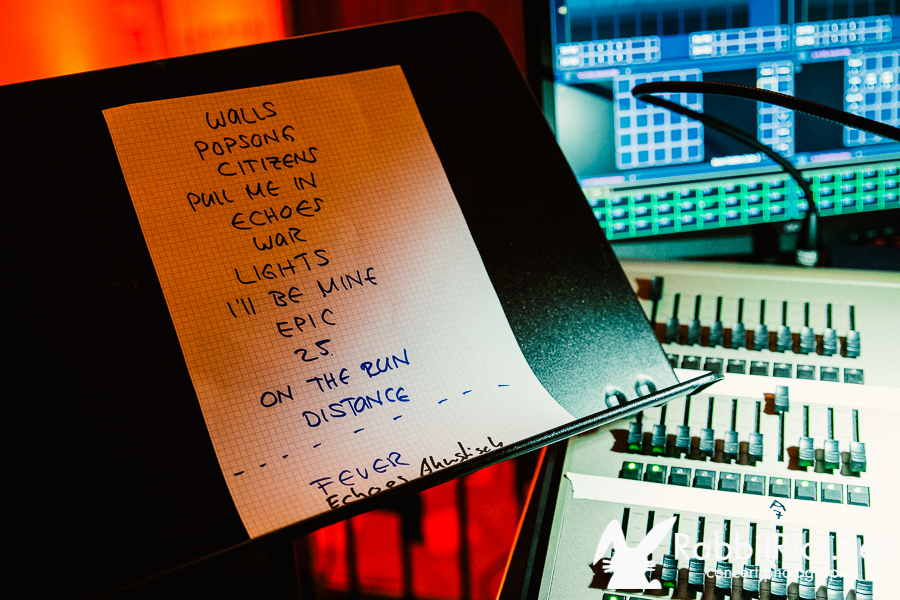 WALLS
POPSONG
CITIZENS
PULL ME IN
ECHOES
WAR
LIGHTS
I'LL BE MINE
EPIC
25
ON THE RUN
DISTANCE
FEVER
Echoes Akustisch